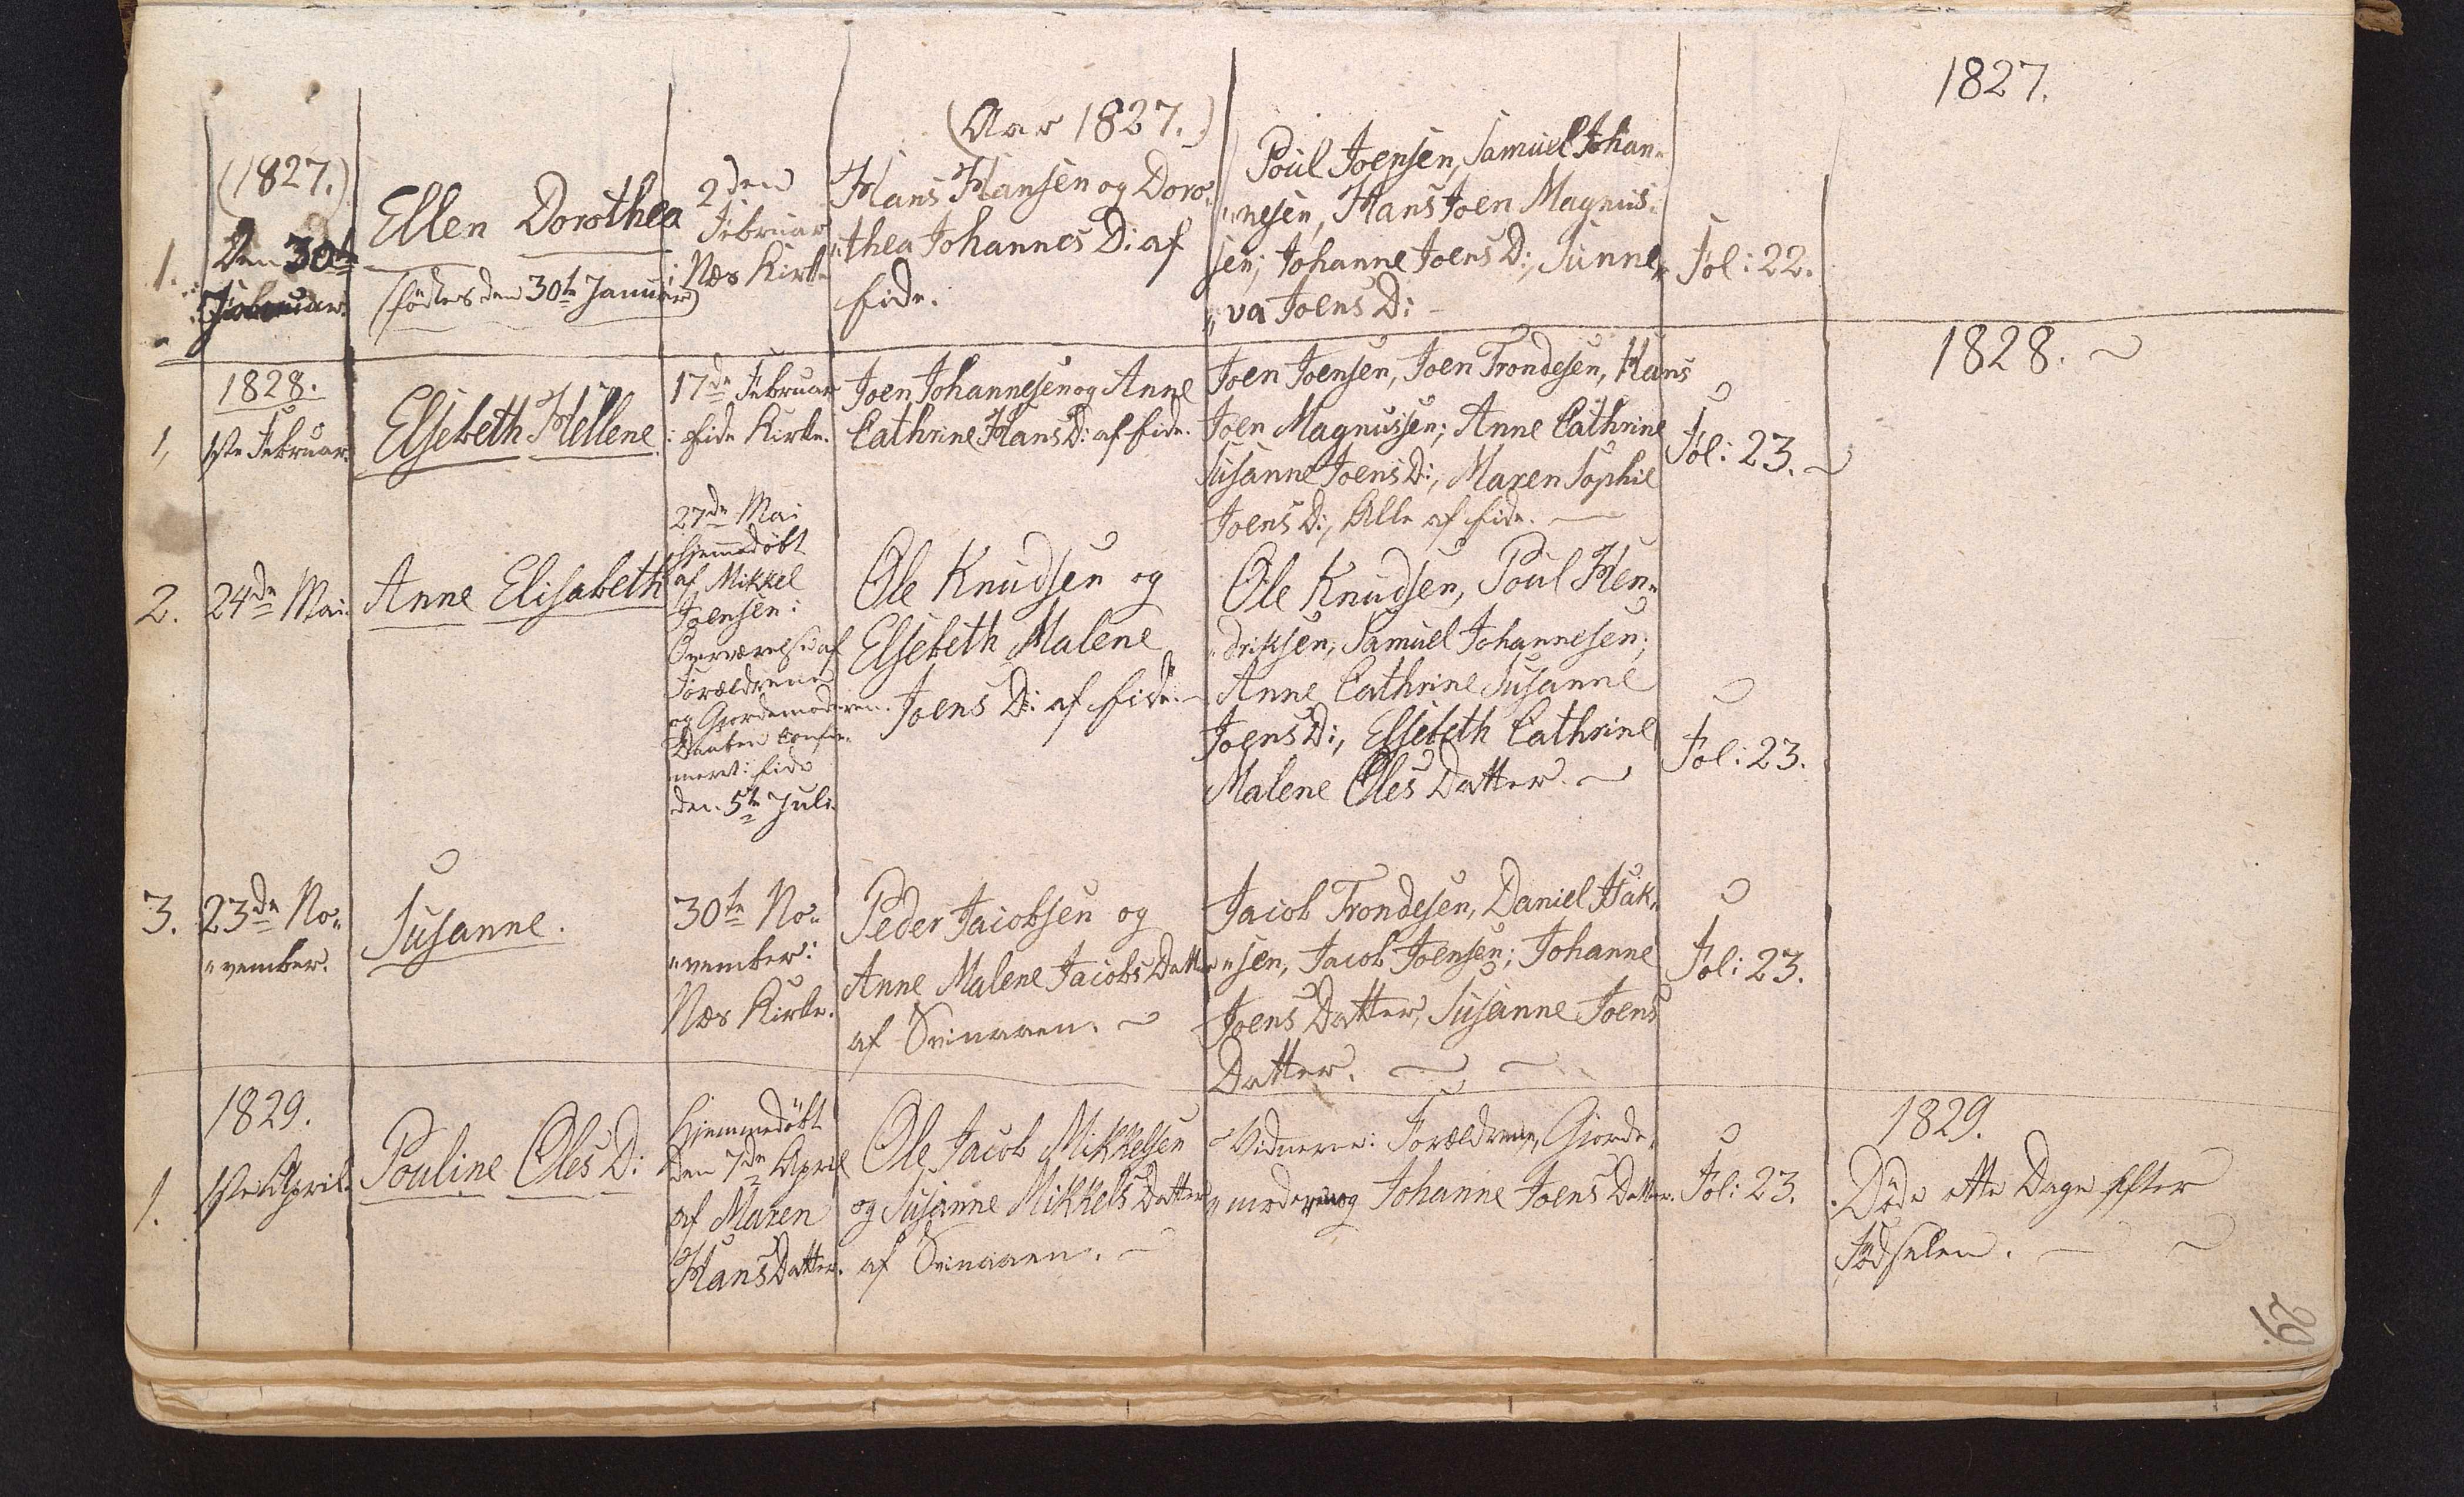 1827.
(Aar 1827.)
(1827.)
1.
Den 30te
Februar.
Ellen Dorothea
(födtes den 30te Januar)
2den
Februar
i Næs Kirke
Hans Hansen og Doro„
„thea Johannes D: af
Eide.
Poul Joensen, Samuel Johan„
„nesen, Hans Joen Magnus„
sen; Johanne Joens D:, Sunne„
„va Joens D: –
Fol: 22.
1828.
1828.
1,
1ste Februar.
Elsebeth Hellene
17de Februar
i Eide Kirke.
Joen Johannesen og Anne
Cathrine Hans D: af Eide.
Joen Joensen, Joen Trondesen, Hans
Joen Magnussen; Anne Cathrine
Susanne Joens D:, Maren Sophie
Joens D:, Alle af Eide. —
Fol: 23.
2.
24de Mai.
Anne Elisabeth
27de Mai
hjemmedöbt
af Mikkel
Joensen i
Overværelse af
Forældrene
og Gjordemoderen.
Daaben confir„
meret i Eide
den 5te Juli.
Ole Knudsen og
Elsebeth Malene
Joens D: af Eide. –
Ole Knudsen, Poul Hen„
„driksen, Samuel Johannesen;
Anne Cathrine Susanne
Joens D:, Elsebeth Cathrine
Malene Oles Datter. ~
Fol: 23.
3.
23de No„
„vember.
Susanne.
30te No„
„vember i
Næs Kirke.
Peder Jacobsen og
Anne Malene Jacobs Datter
af Svinaaen. ~
Jacob Trondesen, Daniel Isak„
„sen, Jacob Joensen; Johanne
Joens Datter, Susanne Joens
Datter. ~ ~
Fol: 23.
1829.
1829.
1.
1ste April.
Pouline Oles D:
Hjemmedöbt
den 7de April
af Maren
Hans Datter.
Ole Jacob Mikkelsen
og Susanne Mikkels Datter
af Svinaaen. –
Vidnerne: Forældrene, Gjorde„
„moderen og Johanne Joens Datter.
Fol: 23.
Döde otte Dage efter
Födselen. — ~
29.